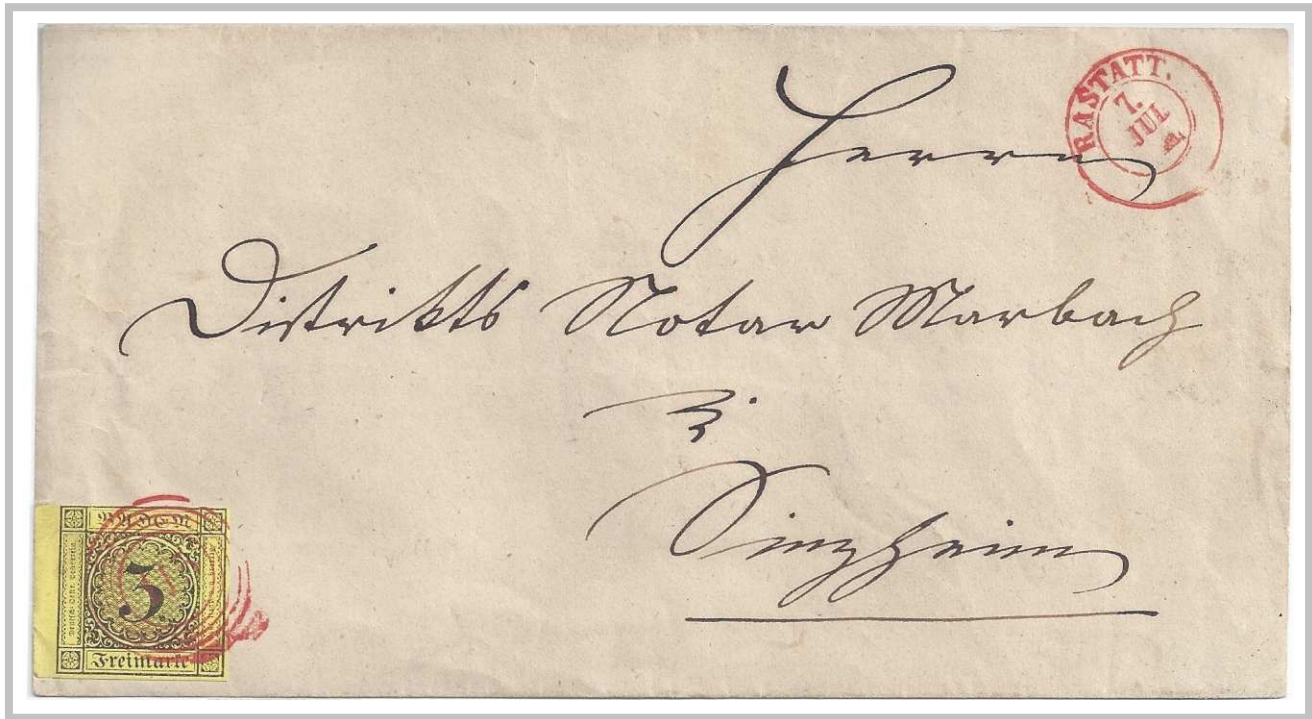 RASTATT.
7.
JUL
Herrn
Distrikts Notar Marbach
z.
Sinzheim
BADEN
3.
Freimarke